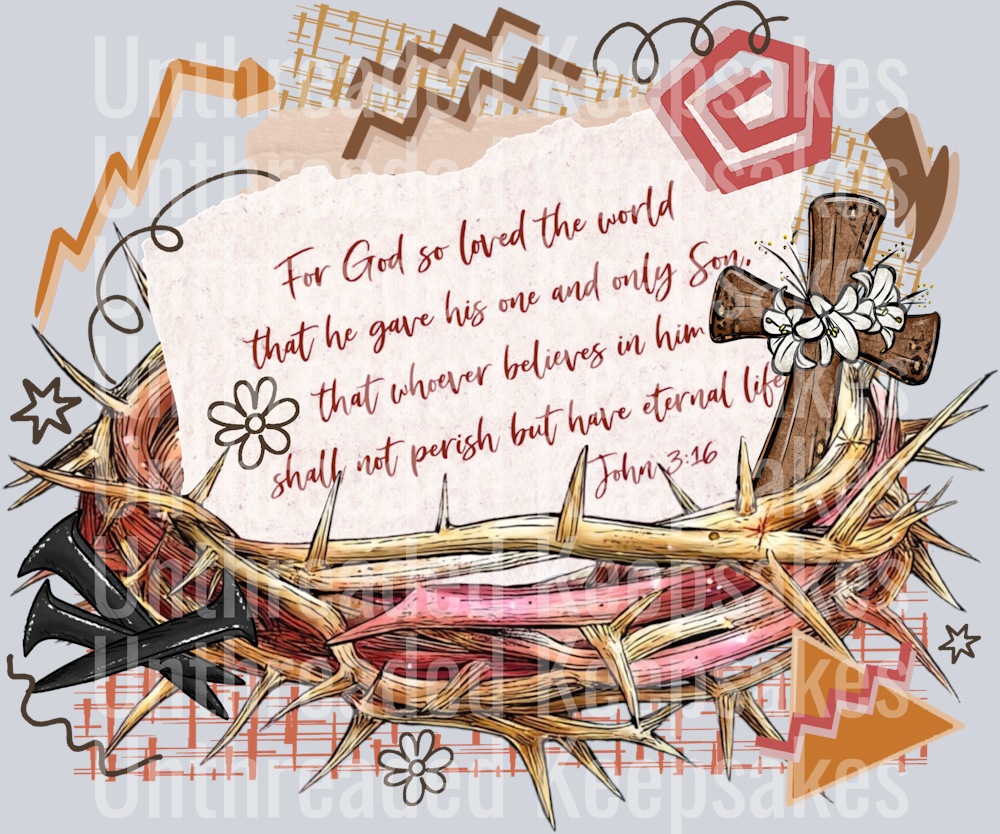 Unthreaded Keepsakes
Unthreaded Keepsakes
Unthreaded Keepsakes
For God so loved the world
that he gave his one and only Son,
that whoever believes in him
shall not perish but have eternal life
John 3:16
Unthreaded Keepsakes
Unthreaded Keepsakes
Unthreaded Keepsakes
Unthreaded Keepsakes